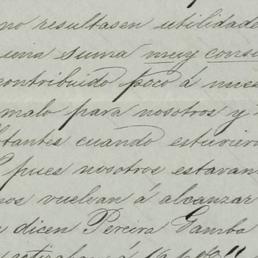 no resultasen utilidade
una suma muy consi
contribuido poco á nues
malo para nosotros y
tantes cuando estuvier
pues nosotros estavan
nos vuelvan á alcanzar
dicen Pereira Gamba